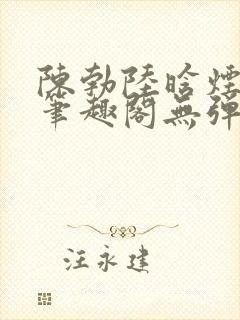 陳勃陸晗煙
筆趣閣無彈
汪永建